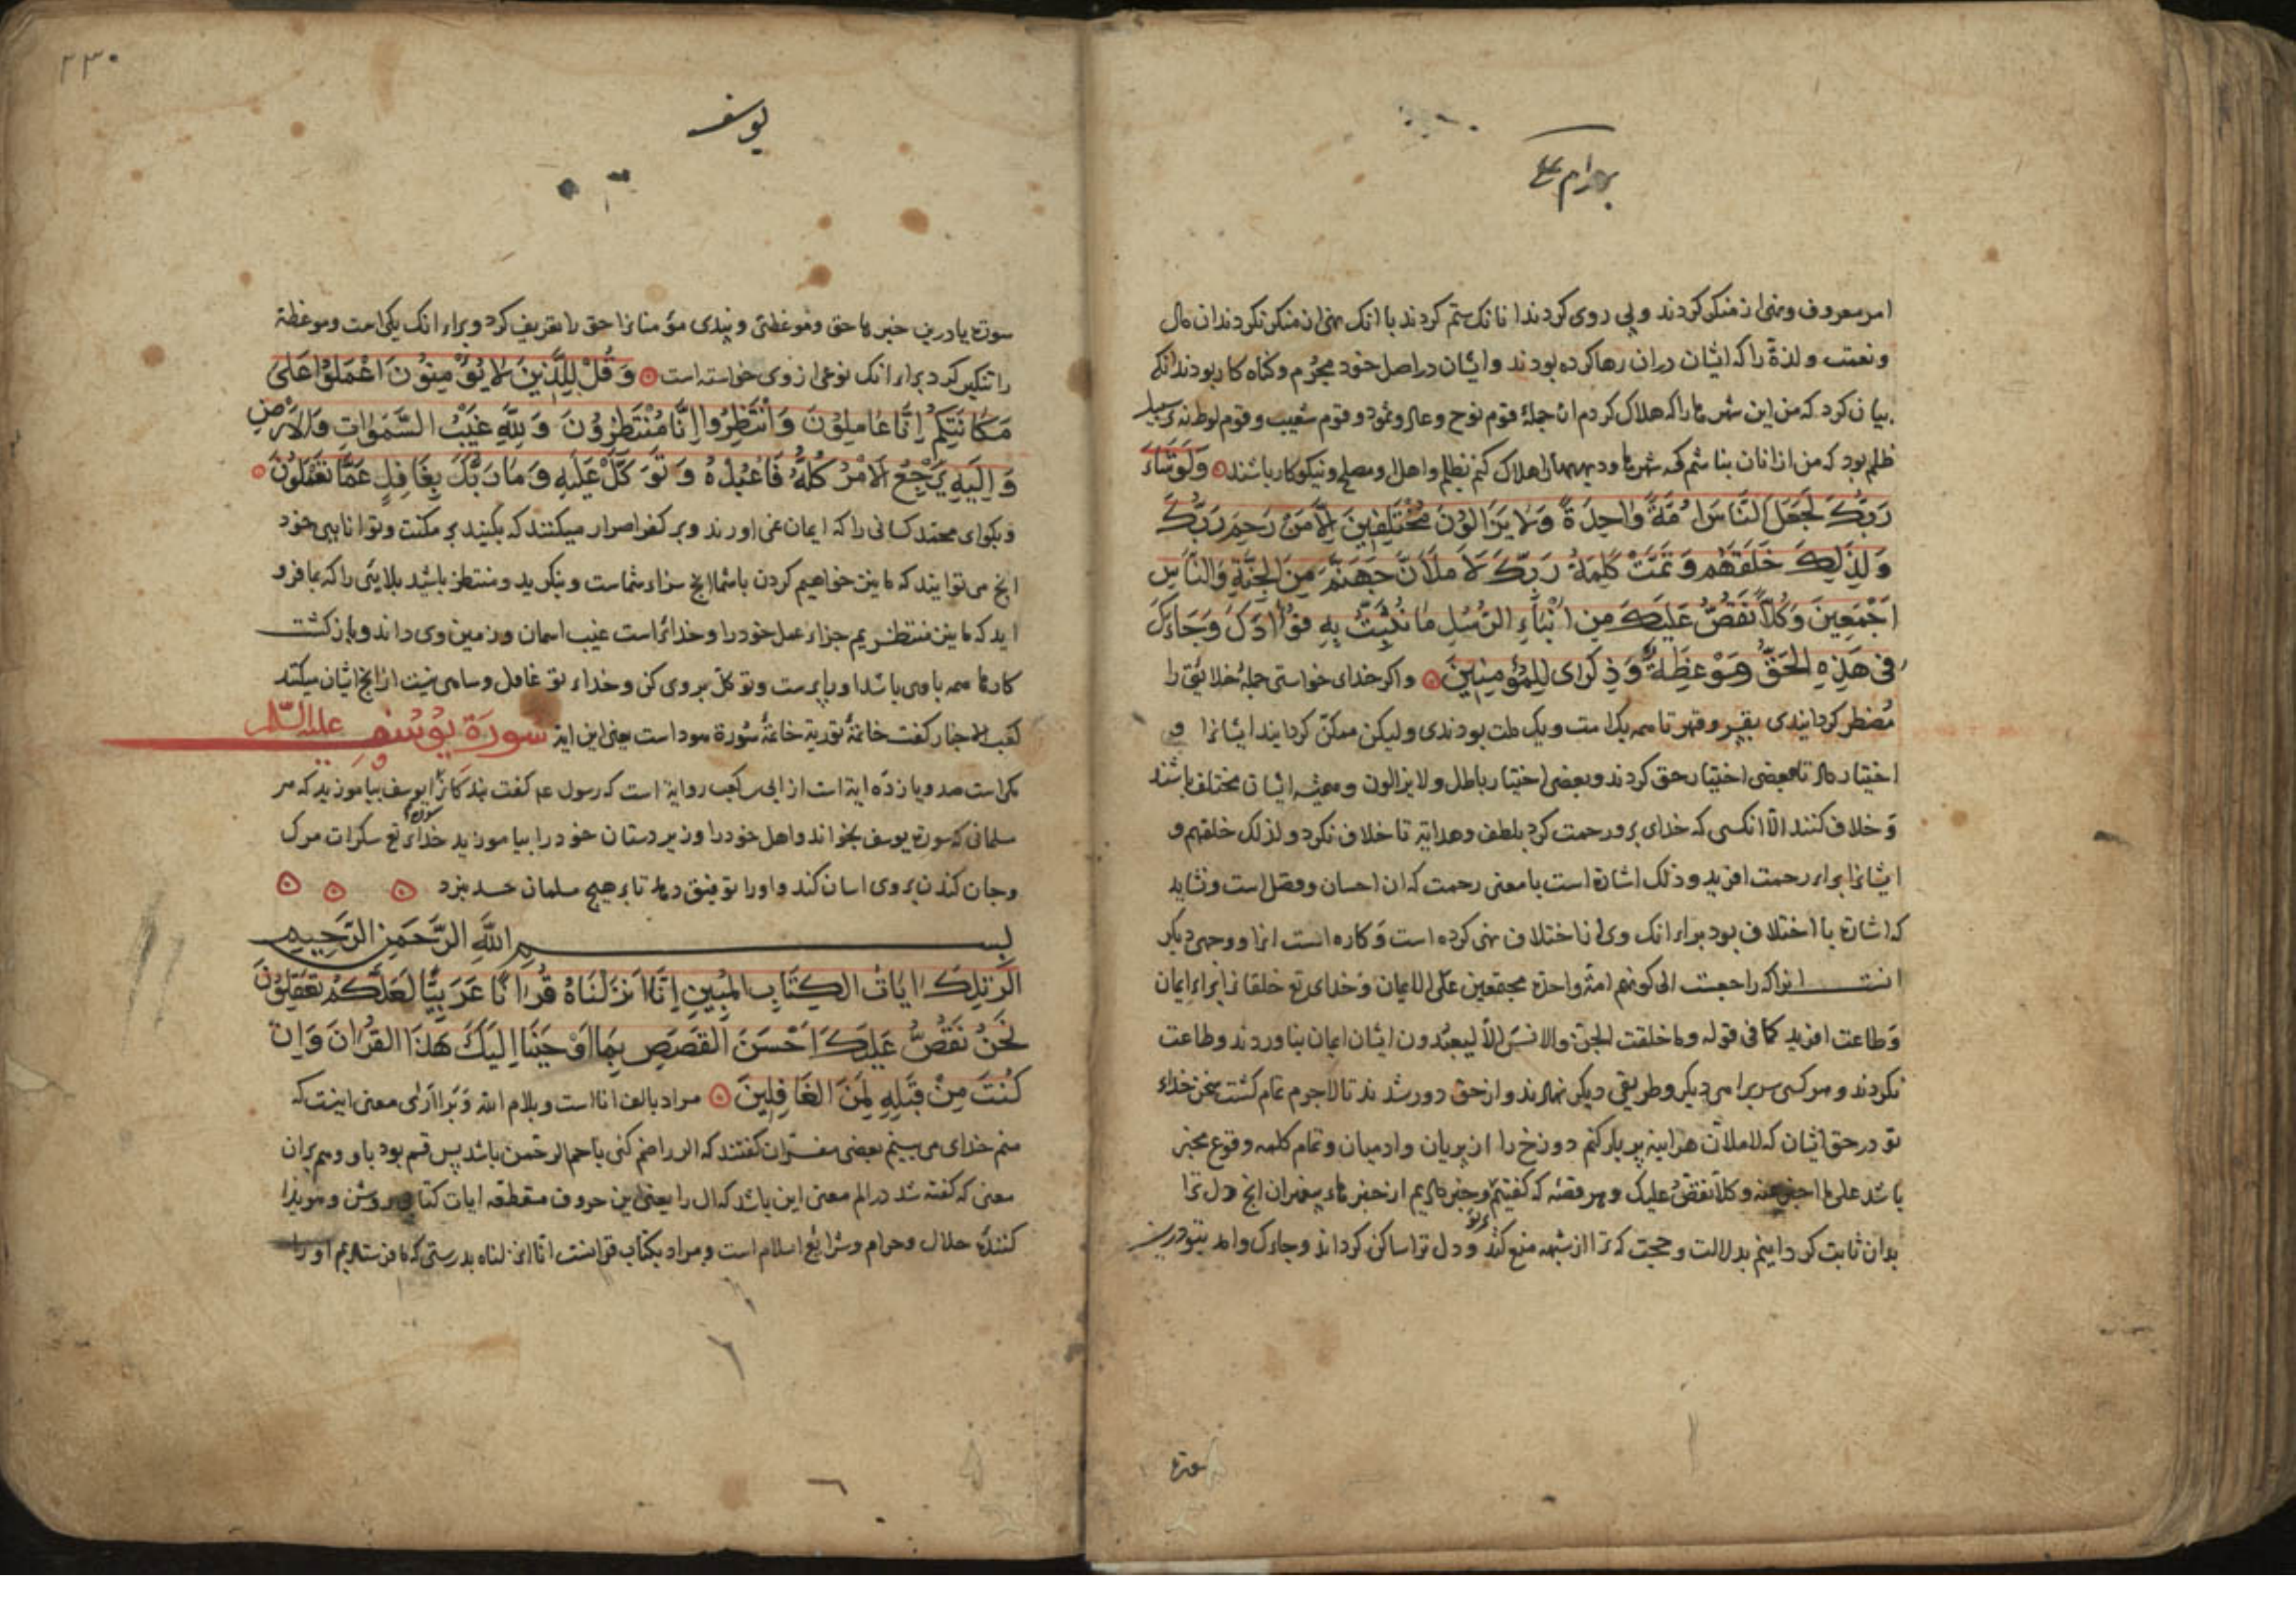 امر معروف و نهی از منکر کردند و پی روی کردند انانک ستم کردند با انک نهی از منکر نکردند ان مال
و نعمت و لذة را که ایشان دران رها کرده بودند و ایشان در اصل خود مجرم و کناه کار بودند انکه
بیان کرد که من این شهرها را که هلاک کردم از جملهٔ قوم نوح و عاد و ثمود و قوم شعیب و قوم لوط نه بر سبیل
ظلم بود که من ازانان نباشم که شهرها و دیهها را هلاک کنم بظلم و اهل او مصلح و نیکوکار باشند وَلَوْ شَاءَ
رَبُّكَ لَجَعَلَ النَّاسَ اُمَّةً وَاحِدَةً وَلَا يَزَالُونَ مُخْتَلِفِينَ اِلَّا مَنْ رَحِمَ رَبُّكَ
وَلِذَلِكَ خَلَقَهُمْ وَتَمَّتْ كَلِمَةُ رَبِّكَ لَاَمْلَاَنَّ جَهَنَّمَ مِنَ الْجِنَّةِ وَالنَّاسِ
اَجْمَعِينَ وَكُلًّا نَقُصُّ عَلَيْكَ مِنْ اَنْبَاءِ الرُّسُلِ مَا نُثَبِّتُ بِهِ فُؤَادَكَ وَجَاءَكَ
فِى هَذِهِ الْحَقُّ وَمَوْعِظَةٌ وَذِكْرَاى لِلْمُؤْمِنِينَ و اکر خدای خواستی جملهٔ خلائق را
مضطر کردانیدی بقهر تا همه یک امت و یک ملت بودندی و لیکن ممکن کردانید ایشانرا و
اختیار داد تا بعضی اختیار حق کردند و بعضی اختیار باطل و لا یزالون و همیشه ایشان مختلف باشند
و خلاف کنند الا انکسی که خدای برو رحمت کرد بلطف و هدایة تا خلاف نکرد و لذلک خلقهم و
ایشانرا برای رحمت افرید و ذلک اشارة است با معنی رحمت که ان احسان و فضل است و نشاید
که اشارة با اختلاف بود برای انک وی از اختلاف نهی کرده است و کاره انست انرا و وجهی دیکر
انست انرا که راجعست الی کونهم امة واحدة مجتمعین علی الایمان و خدای تع خلقانرا برای ایمان
و طاعت افرید کما فی قوله وما خلقت الجن والانس الا لیعبدون ایشان ایمان نیاوردند و طاعت
نکردند و هر کسی سر برامی دیکر و طریقی دیکر نهادند و از حق دور شدند تا لاجرم تمام کشت سخن خدای
تو در حق ایشان که لاملان هراینه پر بار کنم دوزخ را از پریان و ادمیان و تمام کلمه وقوع مخبر
باشد علی ما اخبر عنه و کلا نقص علیک و هر قصه که کفتیم و خبر دادیم از خبرهاء پیغمبران انچ دل ترا
بدان ثابت کردانیم بدلالت و حجت که ترا از شبهه منع کند و دل ترا ساکن کرداند و جاءک وامد بتو درین
سورة
یوسف
سورة یا درین خبرها حق و موعظتی و پندی مؤمنانرا حق را تعریف کرد و برای انک یکی است و موعظة
را تنکیر کرد برای انک نوعی از وی خواسته است وَقُلْ لِلَّذِينَ لَا يُؤْمِنُونَ اعْمَلُوا عَلَى
مَكَانَتِكُمْ اِنَّا عَامِلُونَ وَانْتَظِرُوا اِنَّا مُنْتَظِرُونَ وَلِلَّهِ غَيْبُ السَّمٰوَاتِ وَالْاَرْضِ
وَاِلَيْهِ يَرْجِعُ الْاَمْرُ كُلُّهُ فَاعْبُدْهُ وَتَوَكَّلْ عَلَيْهِ وَمَا رَبُّكَ بِغَافِلٍ عَمَّا تَعْمَلُونَ
و بکوای محمد کسانی را که ایمان نمی اورند و بر کفر اصرار میکنند که بکنید بر مکنت و توانایی خود
انچ می توانید که ما نیز خواهیم کردن باشما انچ سزاء شماست و بنکرید و منتظر باشید بلایی را که بما فرو
اید که ما نیز منتظریم جزاء عمل خود را و خدایراست غیب اسمان و زمین وی داند و بازکشت
کارها همه با وی باشد او را پرست و توکل بر وی کن و خداء تو غافل و ساهی نیست از انچ ایشان میکنند
کعب الاحبار کفت خاتمهٔ توریة خاتمهٔ سورة هود است یعنی این ایة سورة یوسف علیه السلام
مکی است صد و یازده ایة است از ابی کعب روایة است که رسول عم کفت بندکانرا سورة یوسف بیاموزید که هر
سلمانی که سورة یوسف بخواند و اهل خود را و زیر دستان خود را بیاموزید خدای تع سکرات مرک
و جان کندن بر وی اسان کند و او را توفیق دهد تا بر هیچ مسلمان حسد نبرد
بسم الله الرحمن الرحیم
الر تِلْكَ ايَاتُ الْكِتَابِ الْمُبِينِ اِنَّا اَنْزَلْنَاهُ قُرْانًا عَرَبِيًّا لَعَلَّكُمْ تَعْقِلُونَ
نَحْنُ نَقُصُّ عَلَيْكَ اَحْسَنَ الْقَصَصِ بِمَا اَوْحَيْنَا اِلَيْكَ هَذَا الْقُرْانَ وَاِنْ
كُنْتَ مِنْ قَبْلِهِ لَمِنَ الْغَافِلِينَ مراد بالف انا است و بلام الله و برا اری معنی اینست که
منم خدای می بینم بعضی مفسران کفتند که الر را ضم کنی با حم الرحمن باشد پس قسم بود باو و هم بران
معنی که کفته شد در الم معنی این باشد که ال را یعنی این حروف مقطعه ایات کتاب روشن و هویدا
کنندهٔ حلال و حرام و شرائع اسلام است و مراد بکتاب قرانست انا انزلناه بدرستی که ما فرستادیم او را
۲۳۰